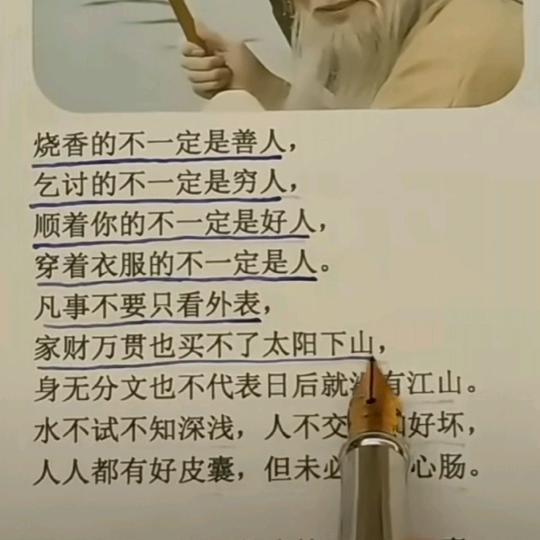 烧香的不一定是善人，
乞讨的不一定是穷人，
顺着你的不一定是好人，
穿着衣服的不一定是人。
凡事不要只看外表，
家财万贯也买不了太阳下山，
身无分文也不代表日后就没有江山。
水不试不知深浅，人不交 好坏，
人人都有好皮囊，但未必 心肠。